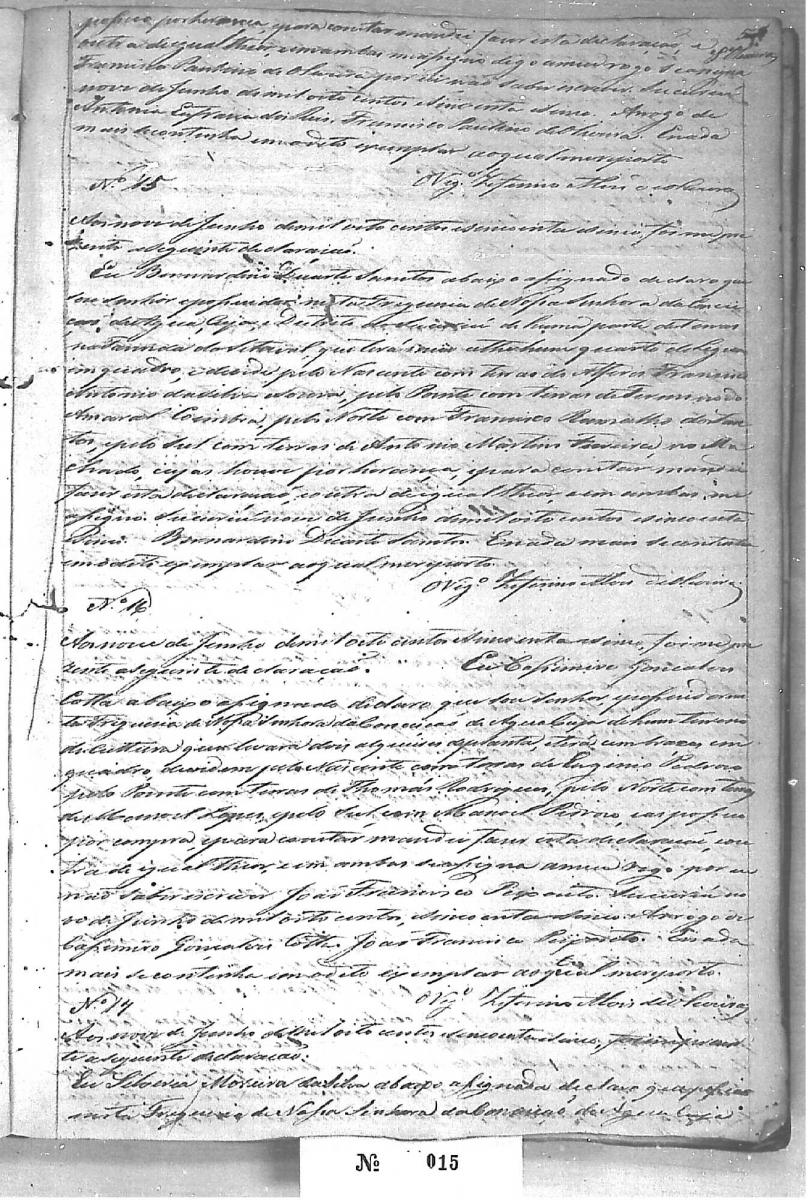 possuo por herança, e para constar mandei fazer esta declaracaõ, e
outra de igual theor, em ambas me assigno digo a meu rogo se assigna
Francisco Paulino de Oliveira por eu não saber escrever. Sucuriú
nove de Junho de mil oito centos e sincoenta e sinco. Arrogo de
Antonia Eufrasia dos Reis. Francisco Paulino de Oliveira. E nada
mais se continha em o dito exemplar ao qual me reporto
O Vigº. Zeferino Alves de Oliveira
Nº 15
Aos nove de Junho de mil oito centos e sincoenta e sinco, foi me pre
zente a seguinte declaracaõ.
Eu Bernardino Duarte Santos abaixo assignado declaro que
sou senhor e possuidor nesta Freguesia de Nossa Senhora da Concei
caõ de Agua Cuja, e Destricto de Sucuriú de huma parte de terras
na Fazenda do quarto de legoa
em quadro, e devide pelo Nascente com terras do Alferes Francisco
Antonio da Silva pelo Poente com terras de
Amaral Coimbra, pelo Norte com Francisco Ramalho dos San
tos, e pelo Sul com terras de Antonio Martins no Ma
chado, cujas houve por herança, e para constar mandei
fazer esta declaracaõ, e outra de igual theor, e em ambas me
assigno. Sucuriú nove de Junho de mil oito centos e sincoenta
e sinco. Bernardino Duarte Santos. E nada mais se continha
em o dito exemplar ao qual me reporto.
O Vigº. Zeferino Alves de Oliveira
Nº 16
Aos nove de Junho de mil oito centos e sincoenta e sinco, foi me pre
zente a seguinte declaracaõ. Eu Cassimiro Goncalves
Cotta abaixo assignado declaro que sou senhor, e possuidor nes
ta Freguesia de Nossa Senhora da Conceicaõ de Agua Cuja de hum terreno
de Cultura que levará dois alqueires de planta, e terá cem braças em
quadro, devidem pelo Nascente com terras de Eugenio Pedroso
pelo Poente com terras de Thomás Rodrigues, pelo Norte com terras
de Manoel Lopes, e pelo Sul com Manoel Pedroso, cas possuo
por compra, e para constar mandei fazer esta declaracaõ, e ou
tra de igual theor, e em ambas se assigna a meu rogo por eu
naõ saber escrever Joaõ Francisco Peixoto. Sucuriú no
ve de Junho de mil oito centos, e sincoenta e sinco. Arrogo de
Cassimiro Gonçalves Cotta. Joaõ Francisco Peixoto. E nada
mais se continha em o dito exemplar ao qual me reporto.
O Vigº. Zeferino Alves de Oliveira
Nº 17
Aos nove de Junho de mil oito centos e sincoenta e sinco, foi me prezen
te a seguinte declaracaõ:
Eu Silveria Moreira da Silva abaixo assignada declaro que possuo
nesta Freguesia de Nossa Senhora da Conceicaõ da Agua Cuja
Nº 015